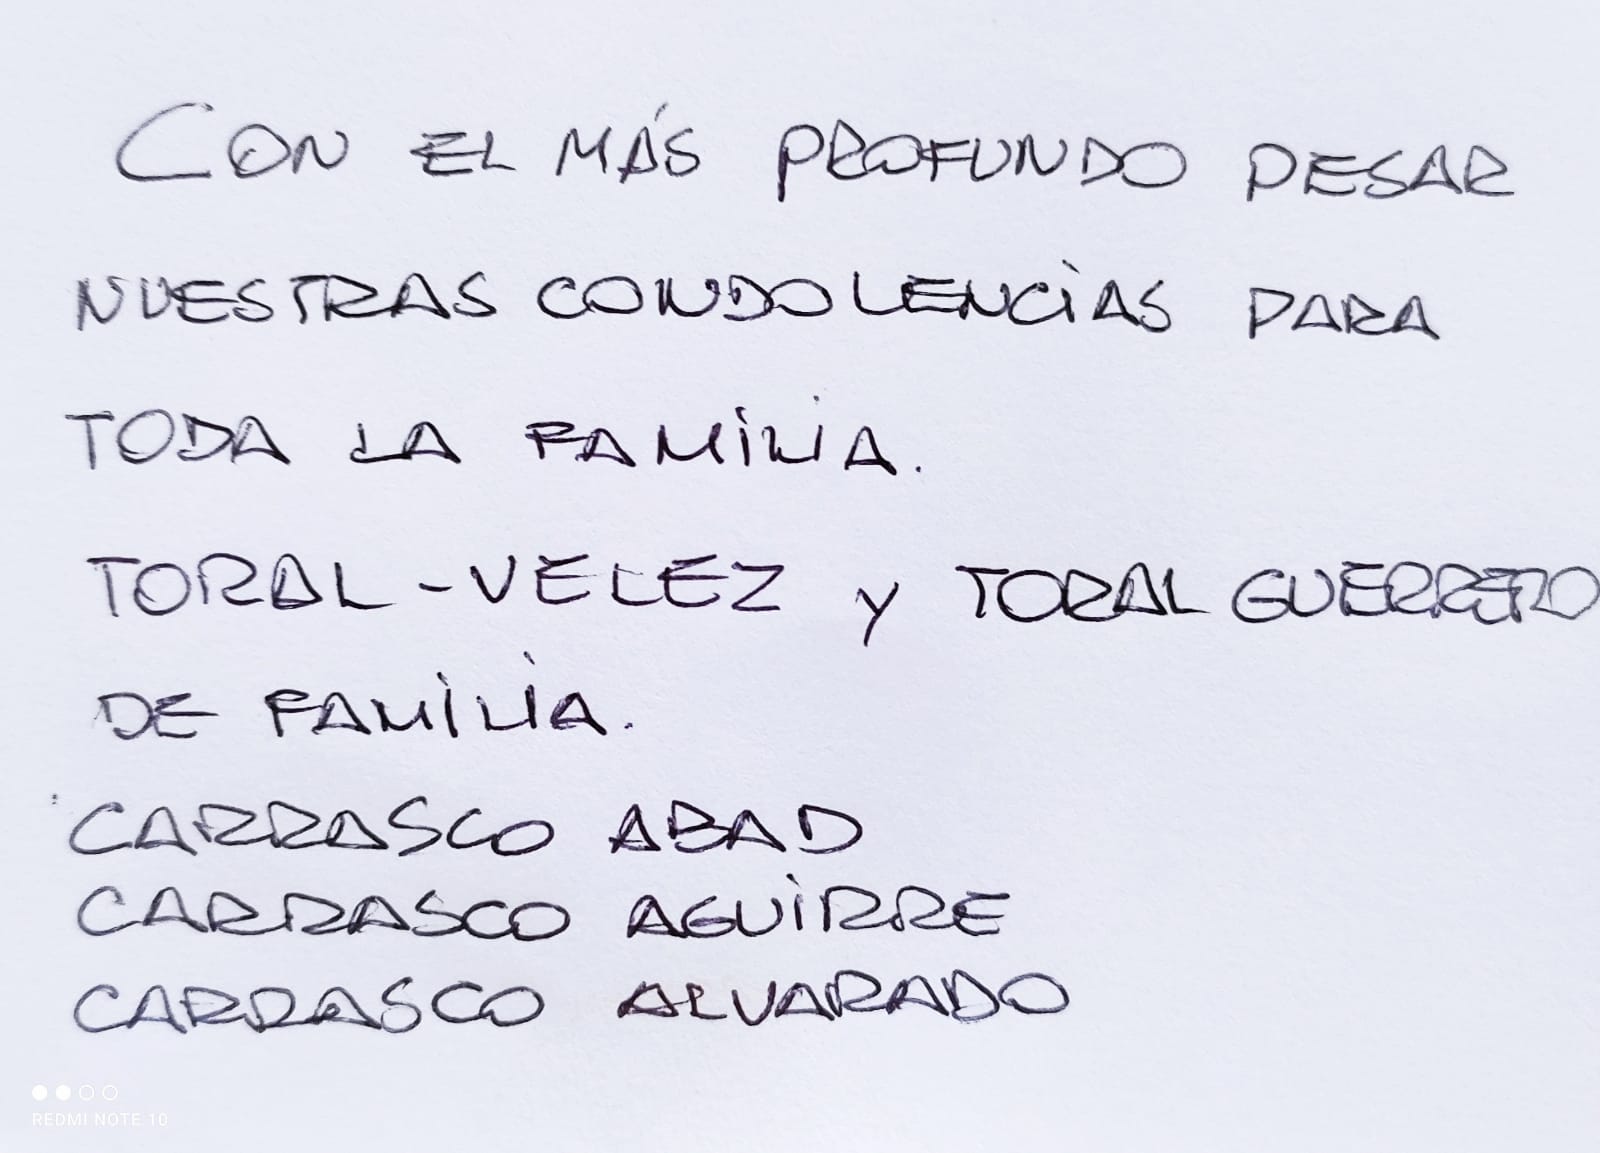 CON EL MÁS PROFUNDO PESAR
NUESTRAS CONDOLENCIAS PARA
TODA LA FAMILIA.
TORAL - VELEZ Y TORAL GUERRERO
DE FAMILIA.
CARRASCO ABAD
CARRASCO AGUIRRE
CARRASCO ALVARADO
REDMI NOTE 10